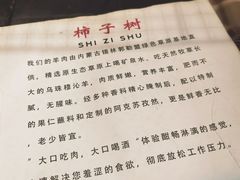 柿子树
SHI ZI SHU
我们的羊肉由内蒙古锡林郭勒盟绿色草原基地直
供,精选原生态草原上喝矿泉水、吃天然牧草长
大的乌珠穆沁羊,肉质鲜嫩,营养丰富,肥而不
腻,无膻味。经多种香料精心腌制后,配以特制
的果仁蘸料和定制的阿克苏孜然,更是鲜香无比
,老少皆宜。
"大口吃肉,大口喝酒"体验酣畅淋漓的感觉,
解决您羞涩的食欲,彻底放松工作压力。